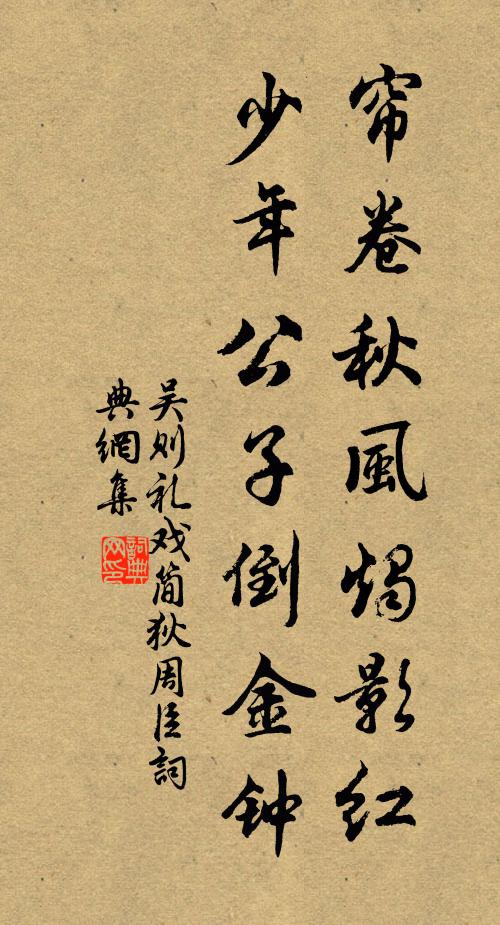 帘卷秋風燭影红
少年公子倒金钟
吴则礼戏简狄周臣詞
典網集
詞典
网印